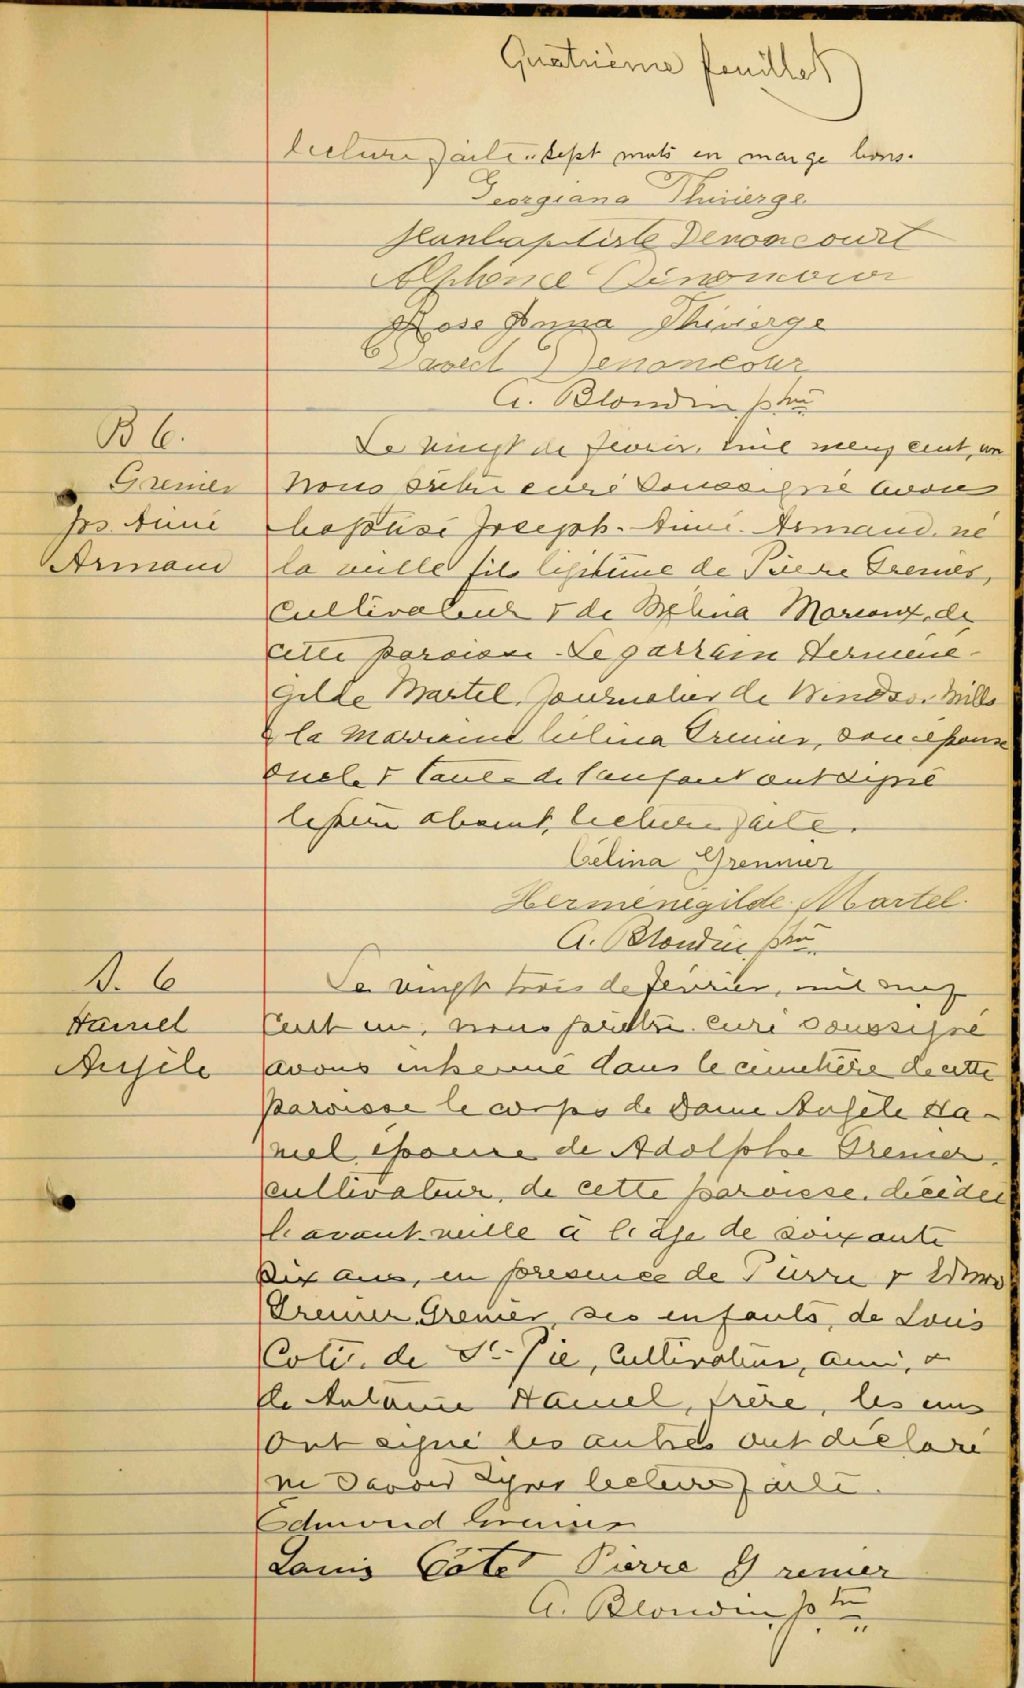 Quatrième feuillet
lecture faite.. sept mots en marge bons.
Georgiana Thivierge
Jeanbaptiste Denoncourt
Alphonce Denoncour
Rose Anna Thivierge
David Denoncour
A. Blondin ptre
B 6.
Grenier
Jos. Aimé
Armand
Le vingt de février, mil neuf cent, un
nous prêtre curé soussigné avons
baptisé Joseph-Aimé-Armand, né
la veille fils légitime de Pierre Grenier,
cultivateur & de Mélina Marcoux, de
cette paroisse. Le parrain Herméné-
gilde Martel, journalier de Windsor Mills
& la marraine Célina Grenier, son épouse
oncle & tante de l'enfant ont signé
le père absent, lecture faite.
Célina Grennier
Herménégilde Martel.
A. Blondin ptre
S. 6
Hamel
Angèle
Le vingt trois de février, mil neuf
cent un, nous prêtre curé soussigné
avons inhumé dans le cimetière de cette
paroisse le corps de Dame Angèle Ha-
mel, épouse de Adolphe Grenier,
cultivateur, de cette paroisse, décédée
l'avant-veille à l'âge de soixante
dix ans, en presence de Pierre & Edmond
Grenier Grenier, ses enfants, de Louis
Coté, de St-Pie, cultivateur, ami, &
de Antoine Hamel, frère, les uns
ont signé les autres ont déclaré
ne savoir signer lecture faite.
Edmond Grenier
Louis Côté Pierre Grenier
A. Blondin ptre